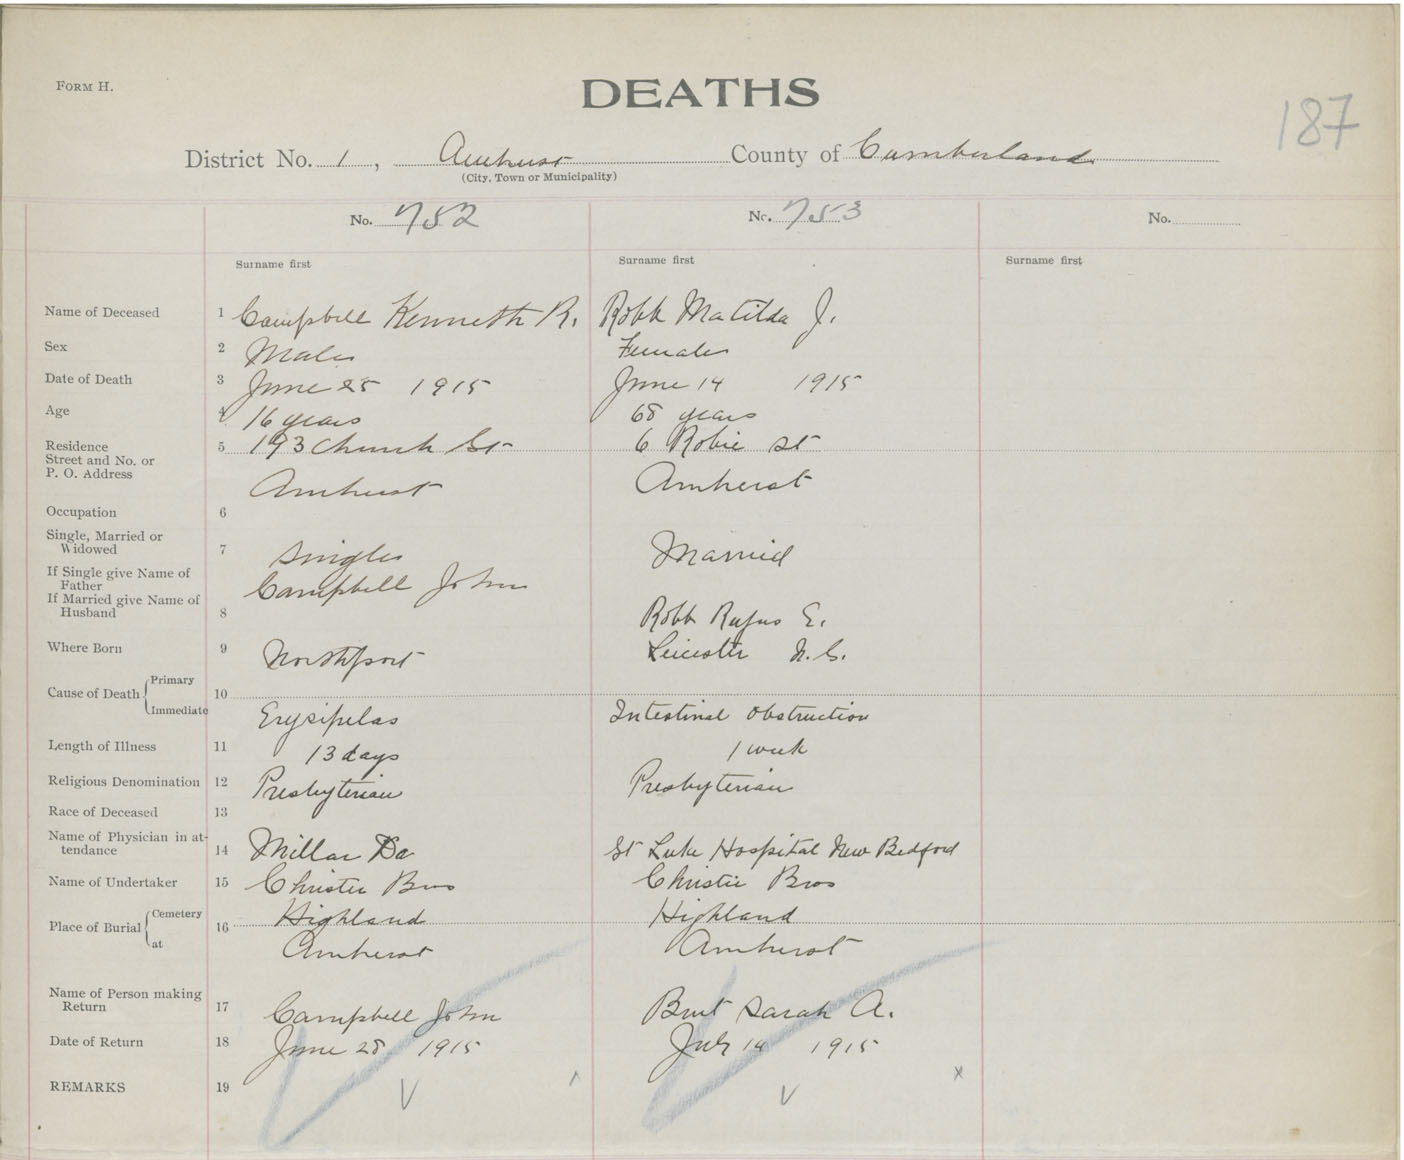 FORM H.
DEATHS
187
District No. 1, Amherst County of Cumberland
(City, Town or Municipality)
No. 752 No. 753 No.
Surname first Surname first Surname first
Name of Deceased 1 Campbell Kenneth R. Robb Matilda J.
Sex 2 Male Female
Date of Death 3 June 25 1915 June 14 1915
Age 4 16 years 68 years
Residence Street and No. or P. O. Address 5 193 Church St 6 Robie St
Amherst Amherst
Occupation 6
Single, Married or Widowed 7 Single Married
If Single give Name of Father Campbell John
If Married give Name of Husband 8 Robb Rufus E.
Where Born 9 Northport Leicester N.S.
Cause of Death Primary 10
Immediate Erysipelas Intestinal Obstruction
Length of Illness 11 13 days 1 week
Religious Denomination 12 Presbyterian Presbyterian
Race of Deceased 13
Name of Physician in attendance 14 Millar Dr St Luke Hospital New Bedford
Name of Undertaker 15 Christie Bros Christie Bros
Place of Burial Cemetery 16 Highland Highland
at Amherst Amherst
Name of Person making Return 17 Campbell John Sarah A.
Date of Return 18 June 28 1915 July 14 1915
REMARKS 19